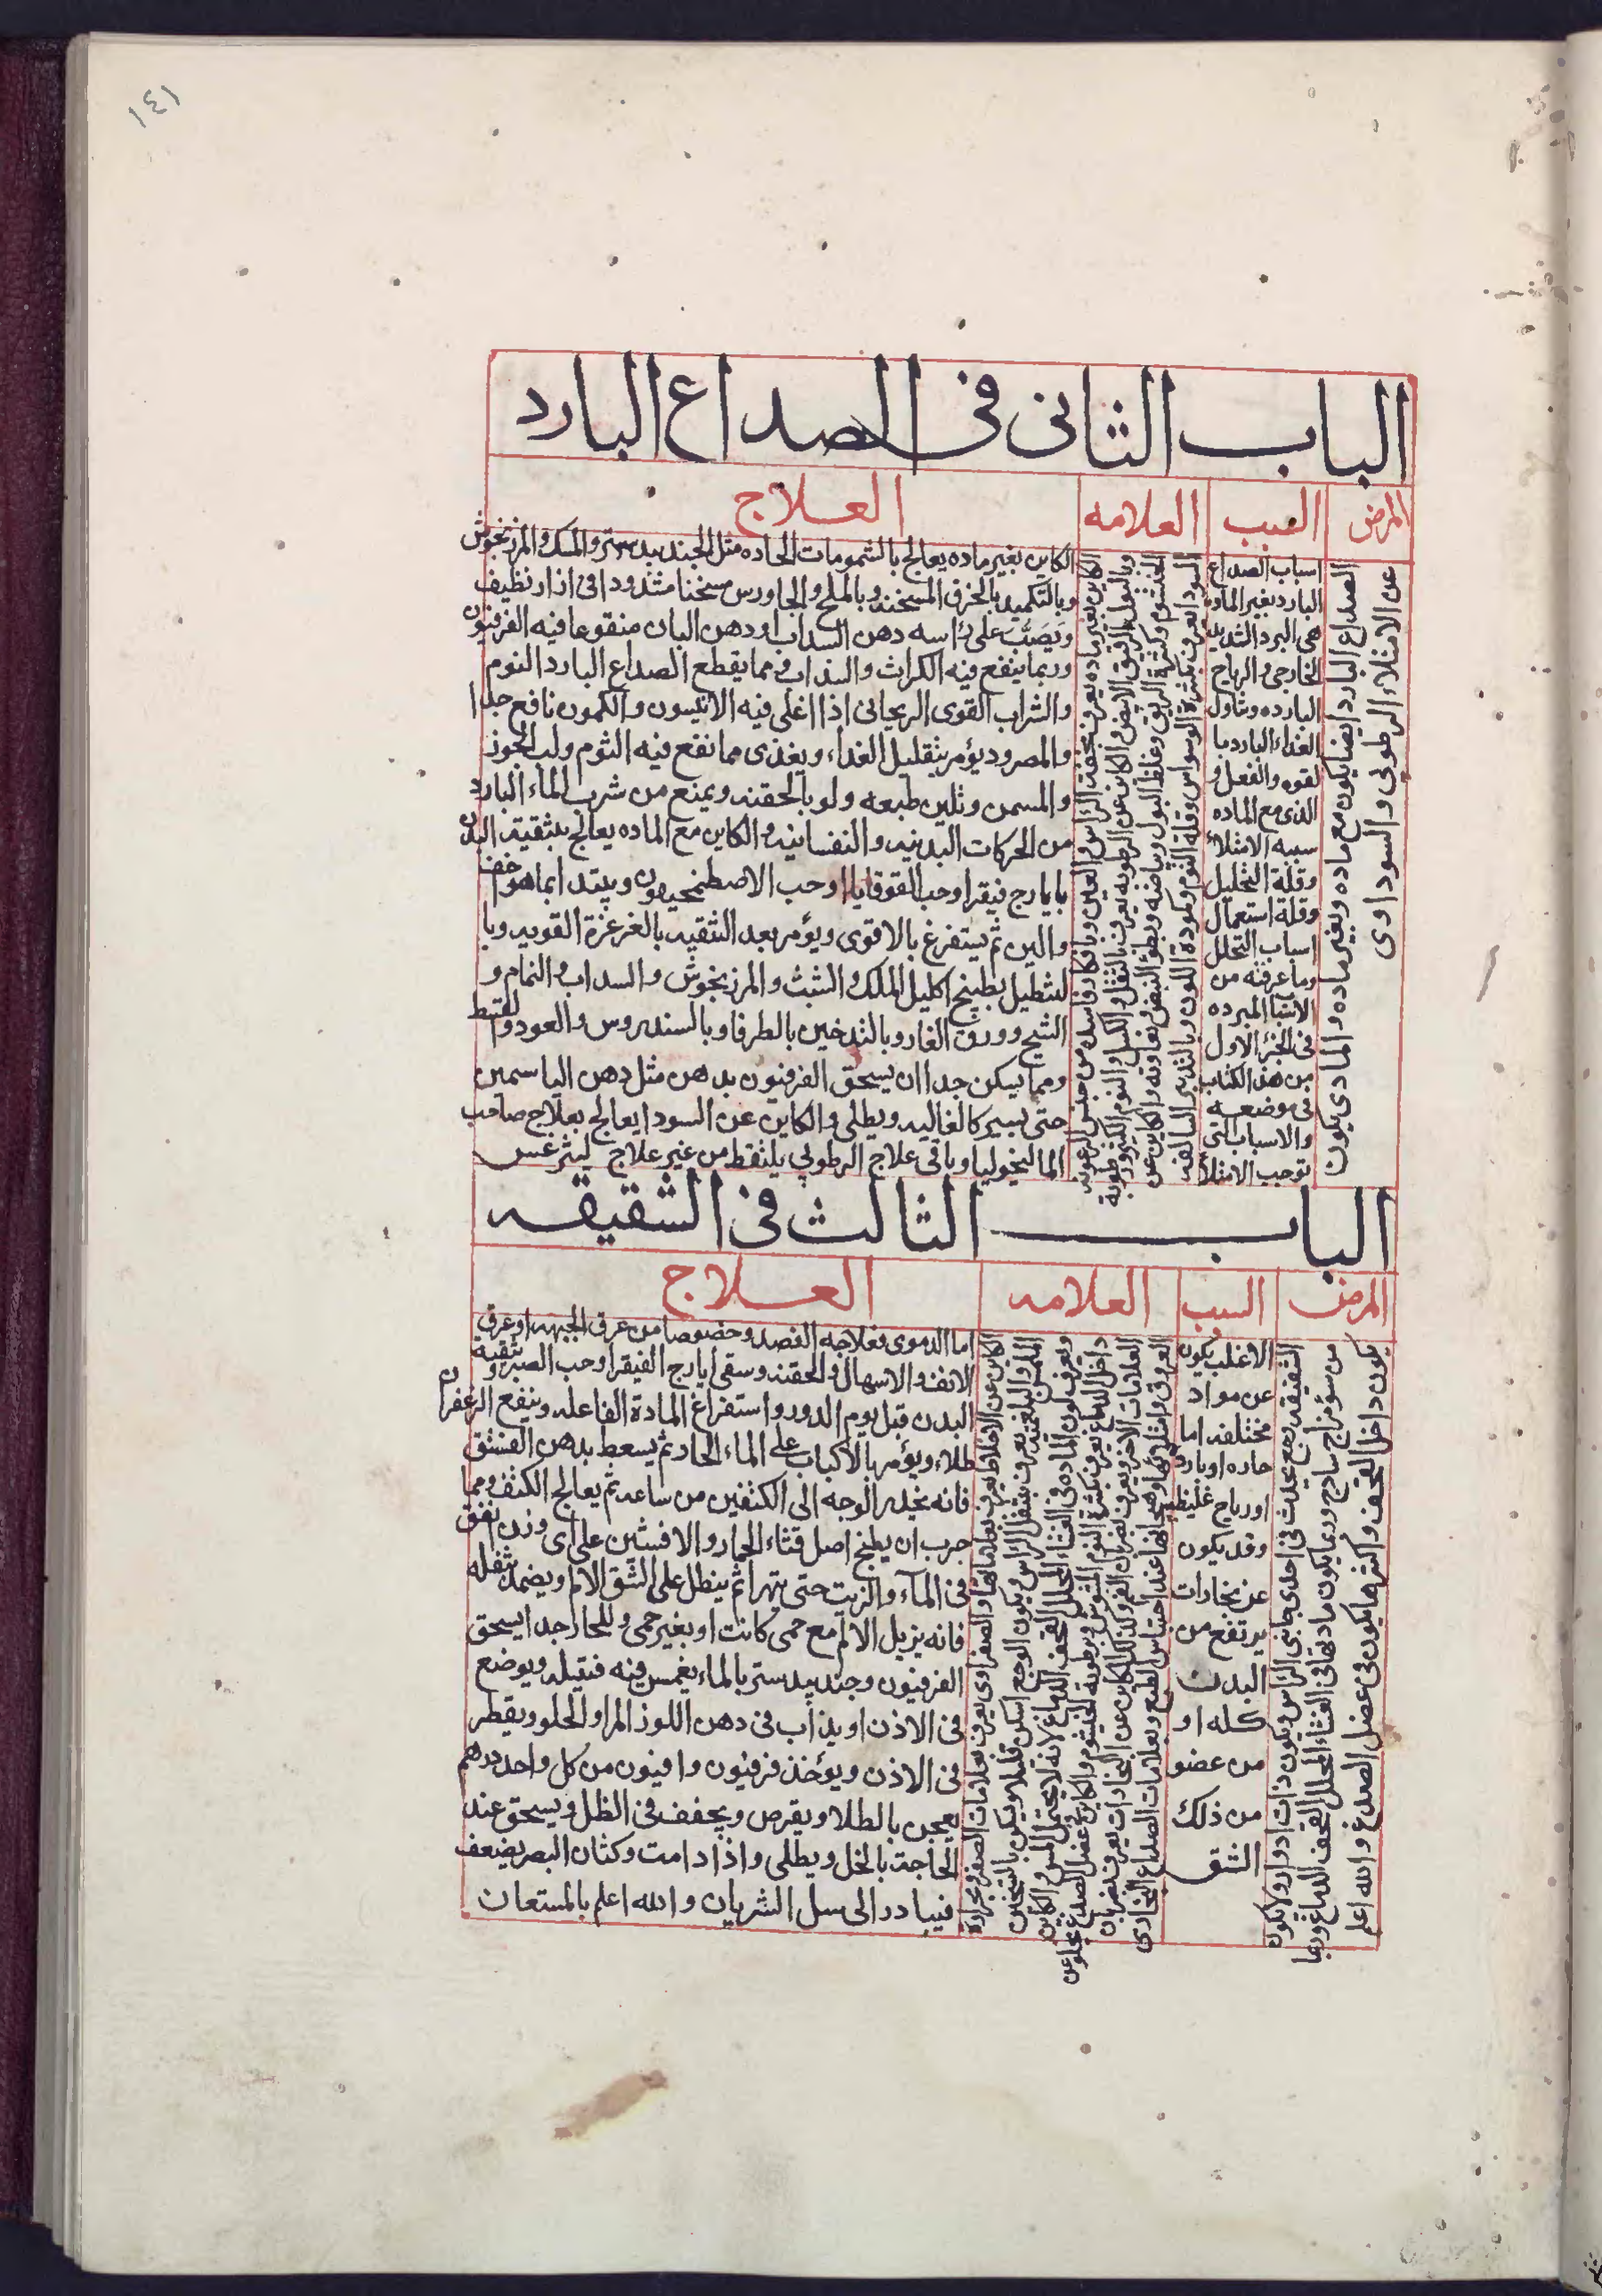 ١٤١
الباب الثانى فى الصداع البارد
المرض
السبب
العلامه
العلاج
الصداع البارد ايضا يكون مع ماده وبغير ماده والمادى يكون
عن الامتلاء الرطوبى والسوداوى
اسباب الصداع
البارد بغير الماده
هى البرد الشديد
الخارجى والرياح
البارده وتناول
الغذاء البارد با
لقوه والفعل و
الذى مع الماده
سببه الامتلاء
وقلة التحليل
وقلة استعمال
اسباب التحلل
وما عرفته من
الاشيا المبرده
فى الجزء الاول
من هذا الكتاب
فى موضعه
والاسباب التى
توجب الامتلا
الكاين بغير ماده يعرف بخفت الراس والعين وبافكار فاسده من جنس الرعونه
وبالبول الرقيق الابيض والكاين عن الرطوبه يعرف بالثقل والكسل والنوم الكثير ورطوبة
الخيشوم وكثرة الريق وغلظ البول وبياضه وبطؤ النبض وتفاوته والكاين عن
السودا يعرف بكثرة الوسواس وقلة النوم وكمودة اللون وبالتدبير السالفه
الكاين بغير ماده يعالج بالشمومات الحاده مثل الجندبيدستر والمسك والمرزنجوش
وبالتكميد بالخرق المسخنه وبالملح والجاورس مسخنا مشدودا فى ازار نظيف
ويصب على راسه دهن السداب او دهن البان منقوعا فيه الفرفيون
وربما ينفع فيه الكراث والسداب ومما يقطع الصداع البارد النوم
والشراب القوى الريحانى اذا اغلى فيه الانيسون والكمون نافع جدا
والمصرود يؤمر بتقليل الغداء ويغذى مما نقع فيه الثوم ولب الجوز
والمسمن وتلين طبعه ولو بالحقنه ويمنع من شرب الماء البارد
من الحركات البدنيه والنفسانيه والكاين مع الماده يعالج بتنقية البدن
بايارج فيقرا وحب القوقايا او حب الاصطمخيقون ويبتدا بما هو اخف
والين ثم يستفرغ بالاقوى ويؤمر بعد التنقيه بالغرغرة القويه وبا
لتنطيل بطبيخ اكليل الملك والشبث والمرزنجوش والسداب والنمام و
الشيح وورق الغار وبالتدخين بالطرفا وبالسندروس والعود والقسط
ومما يسكن جدا ان يسحق الفرفيون بدهن مثل دهن الياسمين
حتى يسير كالغاليه ويطلى والكاين عن السودا يعالج بعلاج صاحب
الماليخوليا وباقى علاج الرطوبى يلتقط من غير علاج ليثرغس
الباب الثالث فى الشقيقه
المرض
السبب
العلامه
العلاج
الشقيقه وجع يحدث فى احدى جانبى الراس ويكون ذات ادوار ولا يكون
من سؤ مزاج ساذج وربما يكون مادتها فى الغشاء المحلل القحف الدماغ وربما
يكون داخل القحف واكثرها يكون فى عضل الصدغ والله اعلم
الاغلب يكون
عن مواد
مختلفه اما
حاره او بارده
او رياح غليظه
وقد يكون
عن بخارات
يرتفع من
البدن
كله او
من عضو
من ذلك
الشق
الكاين عن الاخلاط يعرف بعلاماتها والصفراوى يعرف بعلامات الصفر وبحرارة
الملمس والبلغميه يعرف بثقل الراس ويكون الوجع اسكن قليلا ويسكن بالتسخين
ويعرف كون الماده فى الغشاء المحلل القحف الدماغ لانه لا يحتمل المس والكاين
داخل الدماغ يعرف بكثرة النوم المشوش وبرطوبة الخيشوم والكاين فى عضل الصدغ يخلو عن
العلامات الاخر ويعرف بضربان العروق وكذلك الكاين عن البخارات يعرف بضربان
العروق وامتلائها وهيجانها عند احتباس الطبع وبعلامات الصداع البخارى
اما الدموى فعلاجه الفصد وخصوصا من عرق الجبهه او عرق
الانف والاسهال والحقنه وسقى ايارج الفيقرا وحب الصبر وتنقية
البدن قبل يوم الدور واستفراغ المادة الفاعله وينفع الزعفران
طلاء ويؤمر بالاكباب على الماء الحار ثم يسعط بدهن الفستق
فانه يخدر الوجه الى الكتفين من ساعه ثم يعالج الكتف ومما
جرب ان يطبخ اصل قثاء الحمار والافسنتين على اى وزن اتفق
فى الماء والزيت حتى يتهرا ثم ينطل على الشق الالم ويضمد بثفله
فانه يزيل الالم مع حمى كانت او بغير حمى وللحار جدا يسحق
الفرفيون وجندبيدستر بالماء يغمس فيه فتيله ويوضع
فى الاذن او يذاب فى دهن اللوز المر او الحلو ويقطر
فى الاذن ويؤخذ فرفيون وافيون من كل واحد درهم
يعجن بالطلا ويقرص ويجفف فى الظل ويسحق عند
الحاجة بالخل ويطلى واذا دامت وكثان البصر يضعف
فيبادر الى سل الشريان والله اعلم بالمستعان